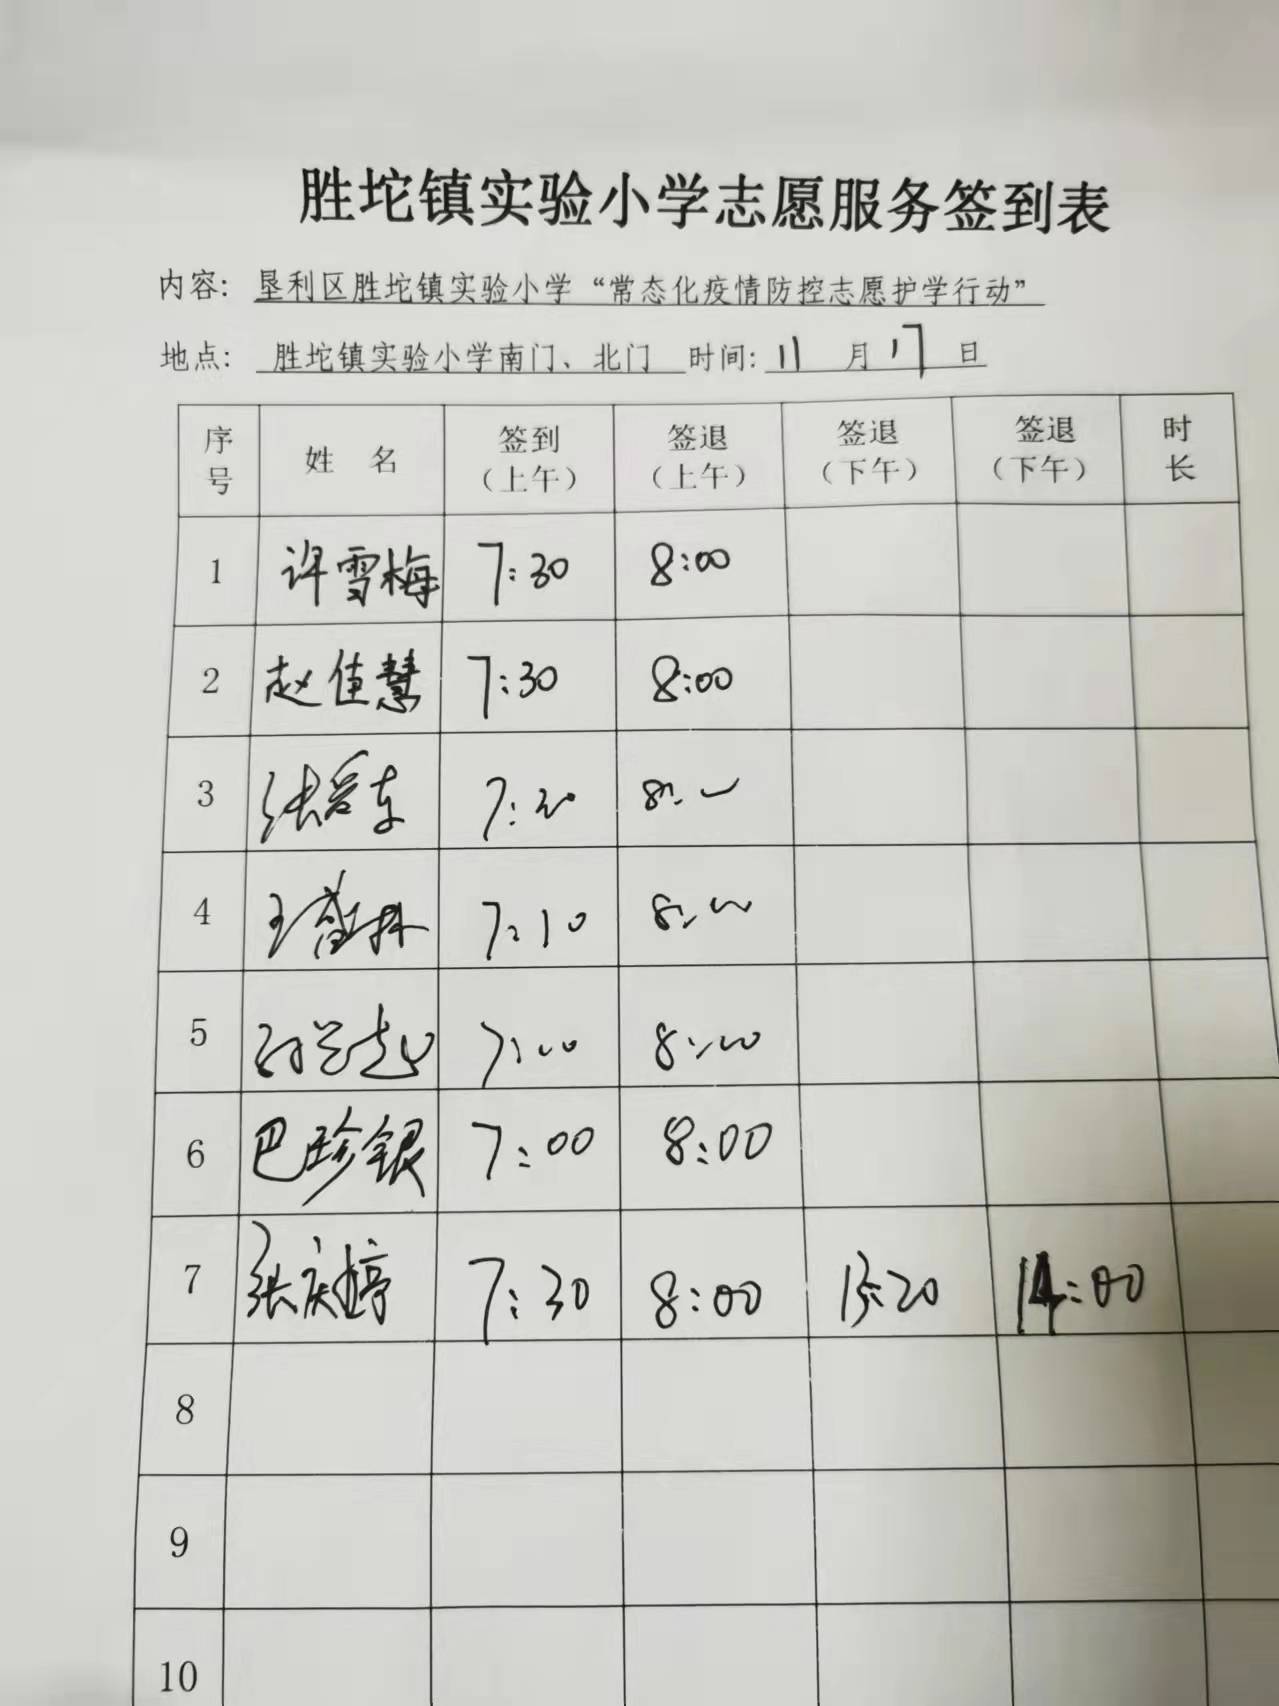 胜坨镇实验小学志愿服务签到表
内容: 垦利区胜坨镇实验小学“常态化疫情防控志愿护学行动”
地点: 胜坨镇实验小学南门、北门 时间: 11 月 17 日
序号 姓 名 签到（上午） 签退（上午） 签退（下午） 签退（下午） 时长
1 许雪梅 7:30 8:00
2 赵佳慧 7:30 8:00
3 7:20 8:00
4 7:10 8:00
5 7:00 8:00
6 巴珍银 7:00 8:00
7 张庆婷 7:30 8:00 13:20 14:00
8
9
10